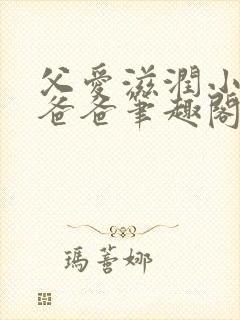 父愛滋潤小
爸爸筆趣閣
瑪蓍娜